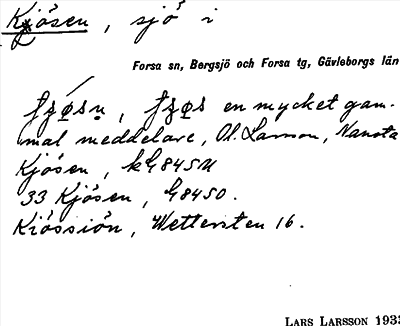 Kjösen, sjö i
Forsa sn, Bergsjö och Forsa tg, Gävleborgs län
en mycket gam-
mal meddelare, Ol. Larsson, Nansta
Kjösen,
33 Kjösen, G8450.
Kiössiön, Wettersten 16.
LARS LARSSON 1933